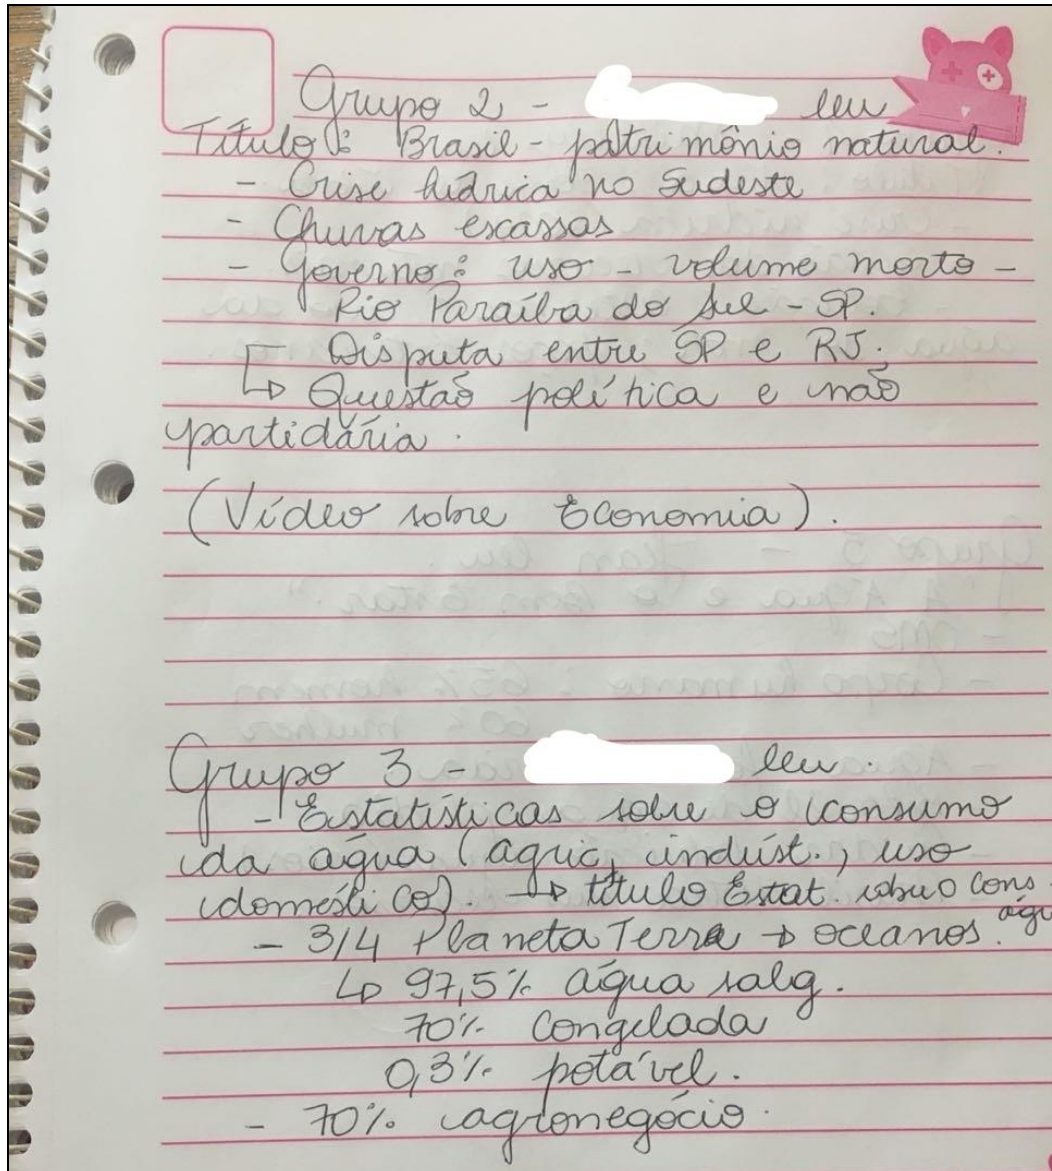 Grupo 2 - leu
Título: Brasil - patrimônio natural.
- Crise hídrica no Sudeste
- Chuvas escassas
- Governo: uso - volume morto -
Rio Paraíba do Sul - SP.
Disputa entre SP e RJ.
↳ Questão política e não
partidária.
(Vídeo sobre Economia).
Grupo 3 - leu.
- Estatísticas sobre o consumo
da água (agric, indúst., uso
doméstico). → título Estat. sobre o cons.
água
- 3/4 Planeta Terra → oceanos.
↳ 97,5% água salg.
70% congelada
0,3% potável.
- 70% agronegócio.